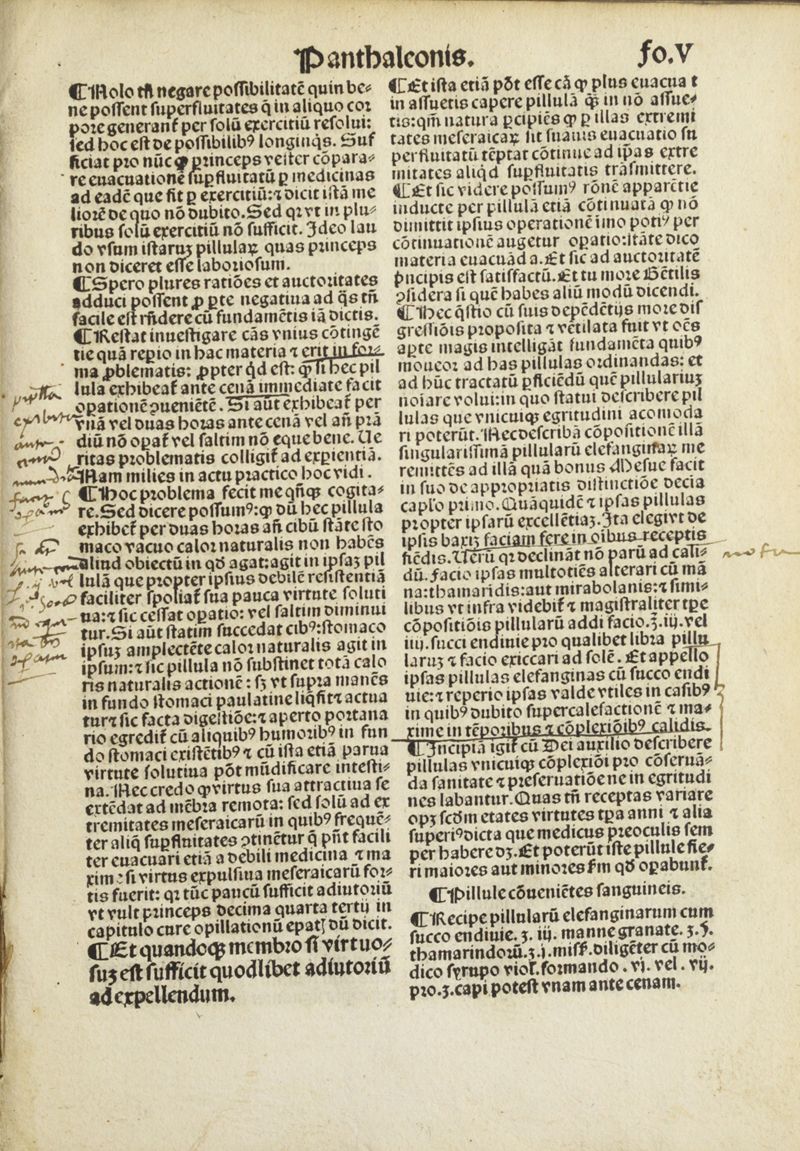 Panthaleonis.
fo.V
¶Nolo tñ negare possibilitatē quin be⸗
ne possent superfluitates q̄ in aliquo cor
pore generant᷑ per solū exercitiū resolui:
sed hoc est de possibilibꝰ longinq̇s. Suf
ficiat pro nūc ꝙ princeps velter cōpara⸗
re euacuationē supfluitatū ꝑ medicinas
ad eadē que fit ꝑ exercitiū:⁊ dicit istā me
liorē de quo nō dubito. Sed qꝛ vt in plu⸗
ribus solū exercitiū nō sufficit. Ideo lau
do vsum istaruꝫ pillulaꝝ quas princeps
non diceret esse laboriosum.
¶Spero plures ratiōes et auctoritates
adduci possent ꝓ ꝑte negatiua ad q̄s tñ
facile est rñdere cū fundamētis iā dictis.
¶Restat inuestigare cās vnius cōtingē
tie quā reperio in hac materia ⁊ erit in for⸗
ma ꝓblematis: ꝓpter qd̓ est: ꝙ si hec pil
lula exhibeat᷑ ante cenā immediate facit
opationē ꝯueniētē. Si aūt exhibeat᷑ per
vnā vel duas horas ante cenā vel añ prā
diū nō opat᷑ vel saltim nō eque bene. Ue
ritas problematis colligit᷑ ad expientiā.
Nam milies in actu practico hoc vidi.
¶Hoc problema fecit me qñqꝫ cogita⸗
re. Sed dicere possumꝰ: ꝙ dū hec pillula
exhibet᷑ per duas horas añ cibū stāte sto
maco vacuo calor naturalis non habēs
aliud obiectū in qd̓ agat: agit in ipsaꝫ pil
lulā que propter ipsius debilē resistentiā
faciliter spoliat᷑ sua pauca virtute soluti
ua: ⁊ sic cessat opatio: vel saltim diminui
tur. Si aūt statim succedat cibꝰ: stomaco
ipsuꝫ amplectēte calor naturalis agit in
ipsum: ⁊ sic pillula nō substinet totā calo
ris naturalis actionē: sꝫ vt supra manēs
in fundo stomaci paulatine liq̇fit ⁊ actua
tur ⁊ sic facta digestiōe: ⁊ aperto portana
rio egredit᷑ cū aliquibꝰ humoribꝰ in fun
do stomaci existētibꝰ ⁊ cū ista etiā parua
virtute solutiua pōt mūdificare intesti⸗
na. Nec credo ꝙ virtus sua attractiua se
extēdat ad mēbra remota: sed solū ad ex
tremitates meseraicarū in quibꝰ frequē⸗
ter aliq̄ supfluitates ꝯtinētur q̄ pñt facili
ter euacuari etiā a debili medicina ⁊ ma
xime si virtus expulsiua meseraicarū for⸗
tis fuerit: qꝛ tūc paucū sufficit adiutoriū
vt vult princeps decima quarta tertij in
capitulo cure opillationū epatꝭ dū dicit.
¶Et quandoqꝫ membro si virtuo⸗
suꝫ est sufficit quodlibet adiutoriū
ad expellendum.
¶Et ista etiā pōt esse cā ꝙ plus euacua t
in assuetis capere pillulā qꝫ in nō assue⸗
tis: qm̄ natura ꝑcipiēs ꝙ ꝑ illas extremi
tates meseraicaꝝ fit suauis euacuatio su
perfluitatū tēptat cōtinue ad ip̄as extre
mitates aliqd̓ supfluitatis trāsmittere.
¶Et sic videre possumꝰ rōnē apparētie
inducte per pillulā etiā cōtinuatā ꝙ nō
dimittit ipsius operationē imo potiꝰ per
cōtinuationē augetur opatio: stāte dico
materia euacuād a. Et sic ad auctoritatē
p̄ncipis est satisfactū. Et tu more Gētilis
ꝯsidera si quē habes aliū modū dicendi.
¶Hec q̄stio cū suis depēdētijs more dis
gressiōis proposita ⁊ vētilata fuit vt oēs
aꝑte magis intelligāt fundamēta quibꝰ
moueor ad has pillulas ordinandas: et
ad hūc tractatū ꝑficiēdū quē pillulariuꝫ
noīare volui: in quo statui describere pil
lulas que vnicuiqꝫ egritudini acomoda
ri poterūt. Nec describā cōpositionē illā
singularissimā pillularū elefanginaꝝ me
remittēs ad illā quā bonus Mesue facit
in suo de appropriatis distinctiōe decia
caplo primo. Quāquidē ⁊ ipsas pillulas
propter ipsarū excellētiaꝫ. Ita elegi vt de
ipsis bariꝫ faciam fere in oibus receptis
fiēdis. Uerū qꝛ declināt nō parū ad cali⸗
dū. facio ipsas multotiēs alterari cū mā
na: thamaridis: aut mirabolanis: ⁊ simi⸗
libus vt infra videbit᷑ ⁊ magistraliter tp̄e
cōpositiōis pillularū addi facio. ʒ. iij. vel
iiij. succi endiuie pro qualibet libra pillu
laruꝫ ⁊ facio exiccari ad solē. Et appello
ipsas pillulas elefanginas cū succo endi
uie: ⁊ reperio ipsas valde vtiles in casibꝰ
in quibꝰ dubito supercalefactionē ⁊ ma⸗
xime in tēporibus ⁊ cōplexiōibꝰ calidis.
¶Incipiā igit᷑ cū Dei auxilio describere
pillulas vnicuiqꝫ cōplexiōi pro cōseruā⸗
da sanitate ⁊ preseruatiōe ne in egritudi
nes labantur. Quas tñ receptas variare
opꝫ scd̓m etates virtutes tpa anni ⁊ alia
superiꝰdicta que medicus preoculis sem
per habere dꝫ. Et poterūt iste pillule fie⸗
ri maiores aut minores fm qd̓ opabunt᷑.
¶Pillule cōueniētes sanguineis.
¶Recipe pillularū elefanginarum cum
succo endiuie. ʒ. iij. manne granate. ʒ. ẞ.
thamarindorū. ʒ. i. misf. diligēter cū mo⸗
dico syrupo viol. formando. vj. vel. vij.
pro. ʒ. capi potest vnam ante cenam.